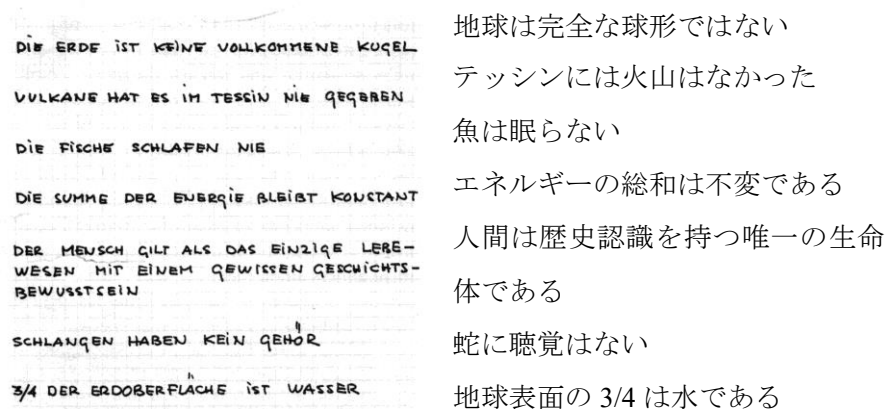 DIE ERDE IST KEINE VOLLKOMMENE KUGEL
VULKANE HAT ES IM TESSIN NIE GEGEBEN
DIE FISCHE SCHLAFEN NIE
DIE SUMME DER ENERGIE BLEIBT KONSTANT
DER MENSCH GILT ALS DAS EINZIGE LEBE-
WESEN MIT EINEM GEWISSEN GESCHICHTS-
BEWUSSTSEIN
SCHLANGEN HABEN KEIN GEHÖR
3/4 DER ERDOBERFLÄCHE IST WASSER
地球は完全な球形ではない
テッシンには火山はなかった
魚は眠らない
エネルギーの総和は不変である
人間は歴史認識を持つ唯一の生命
体である
蛇に聴覚はない
地球表面の 3/4 は水である